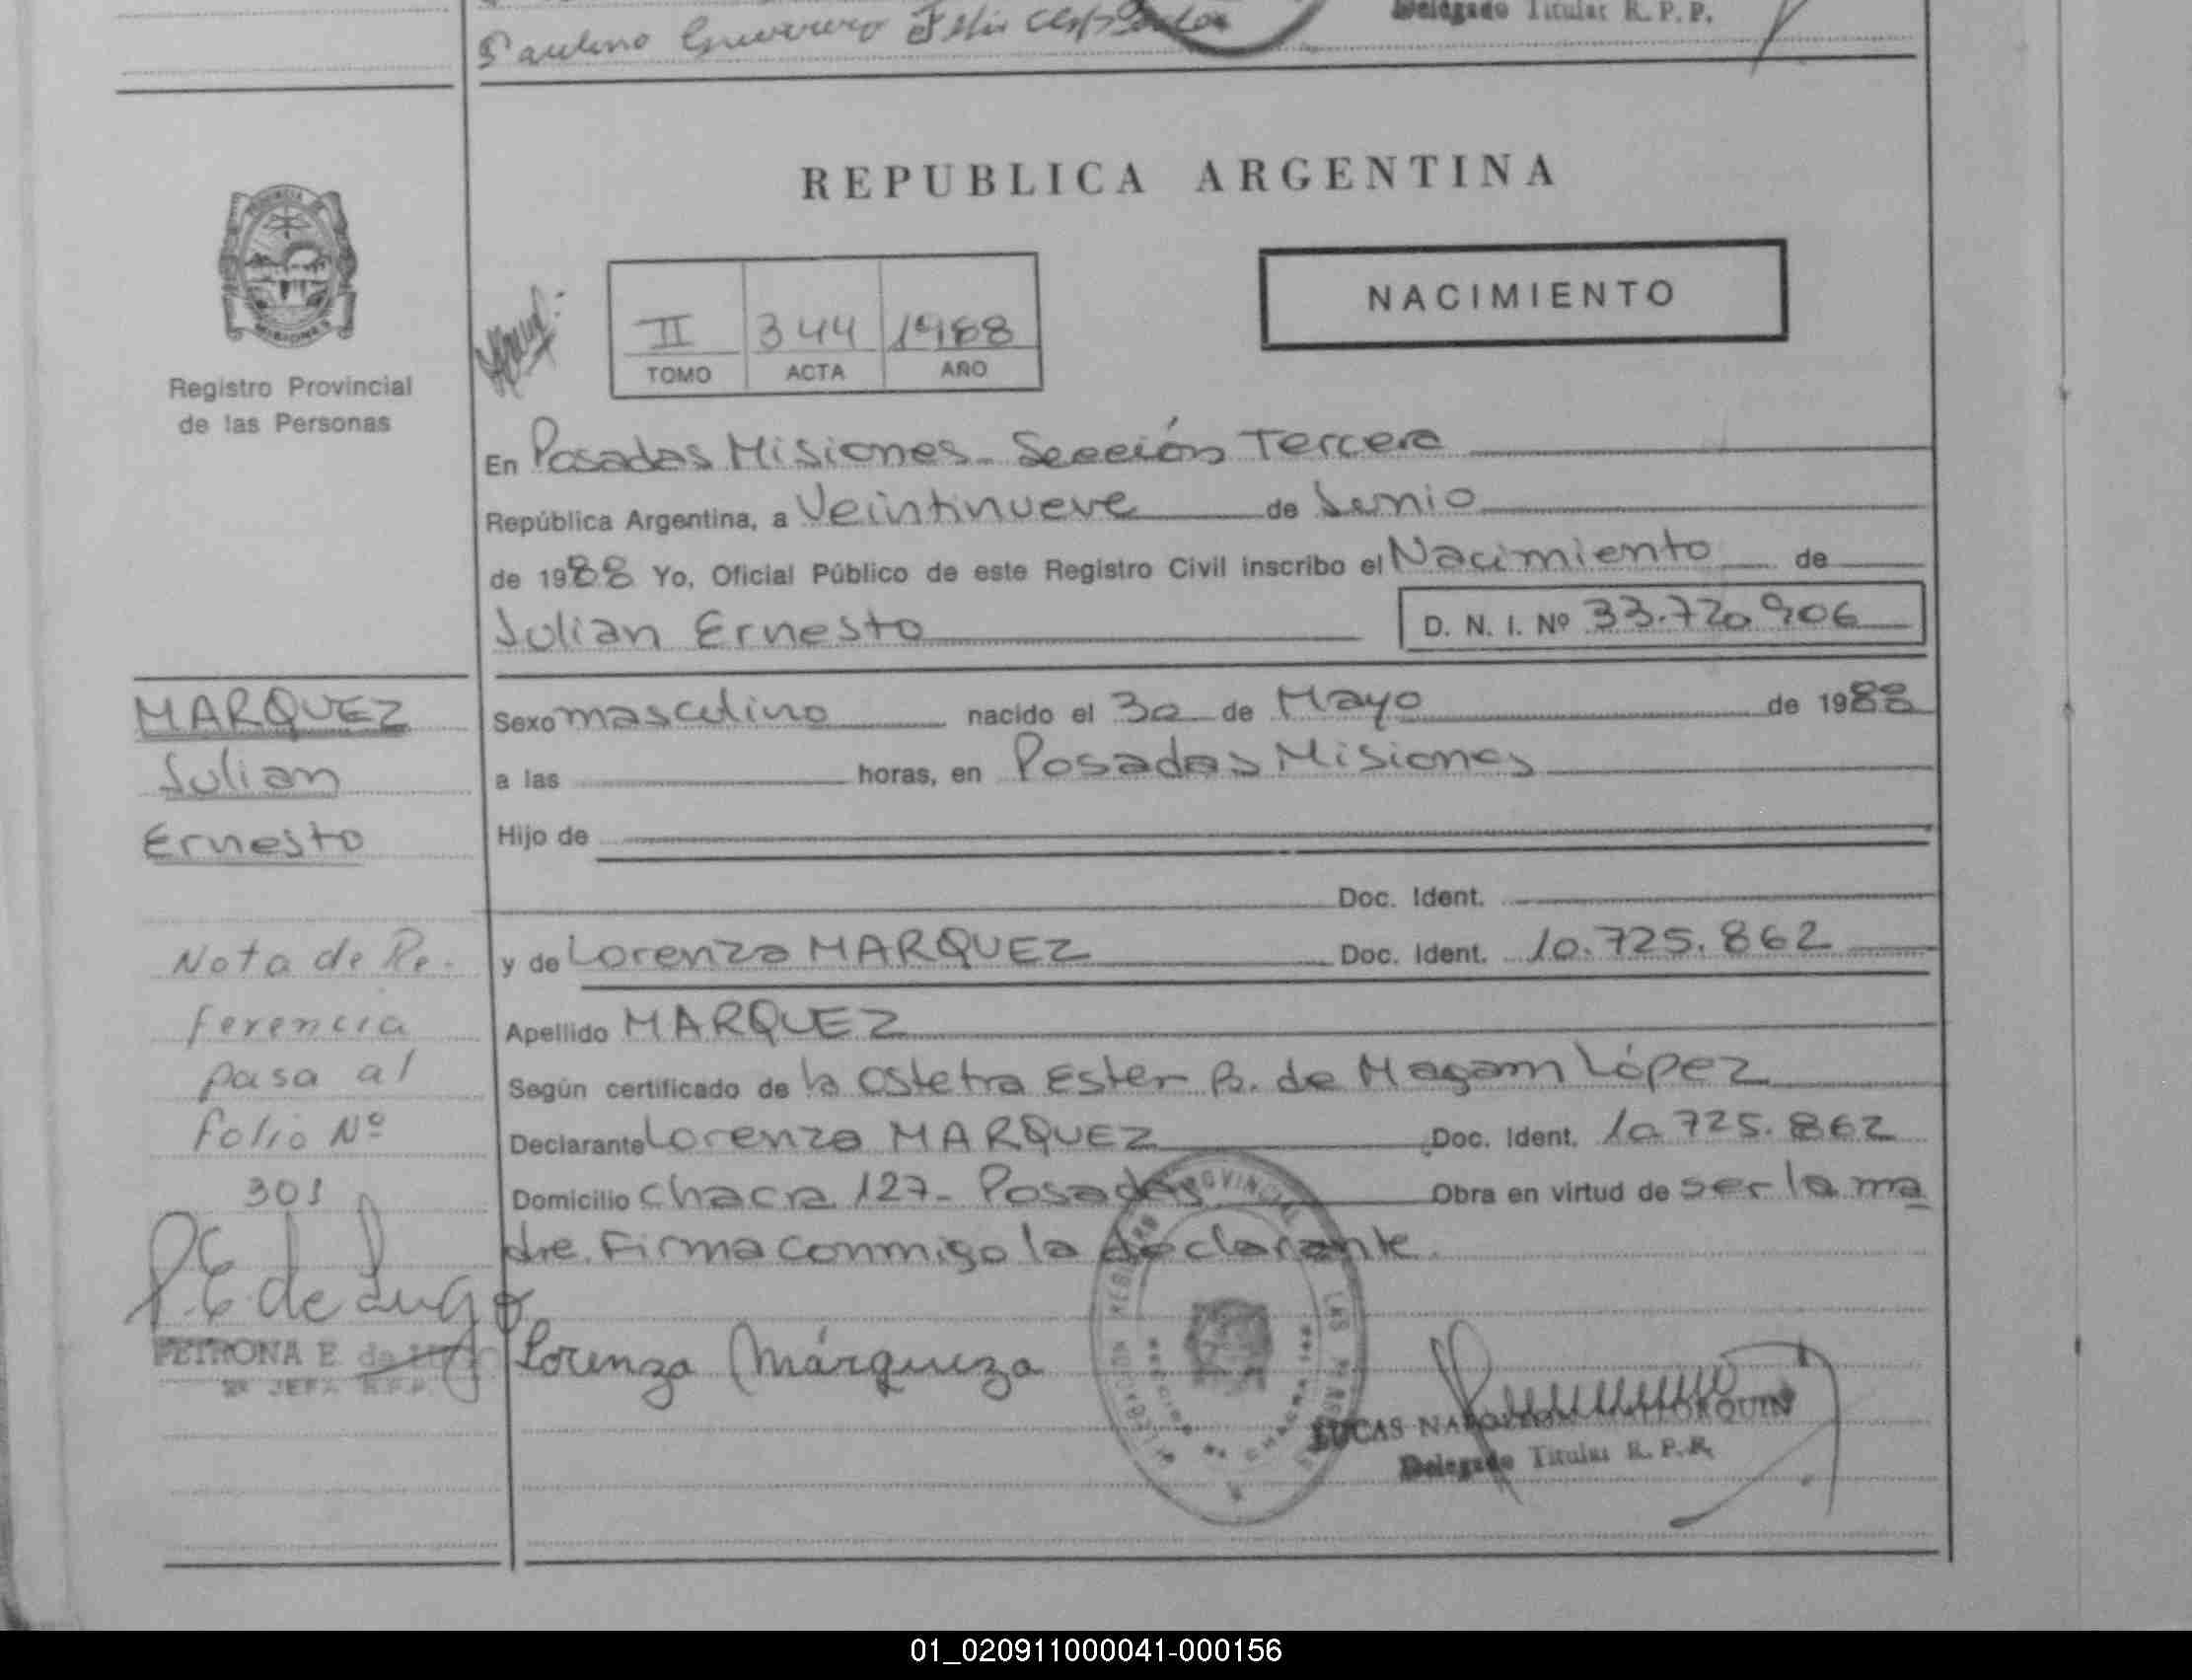 Paulino Guerrero
Delegado Titular R. P. P.
REPUBLICA ARGENTINA
NACIMIENTO
II 344 1988
TOMO ACTA AÑO
Registro Provincial
de las Personas
En Posadas Misiones - Sección Tercera
República Argentina, a Veintinueve de Junio
de 1988 Yo, Oficial Público de este Registro Civil inscribo el Nacimiento de
Julian Ernesto D. N. I. Nº 33.720.906
MARQUEZ
Julian
Ernesto
Sexo masculino nacido el 30 de Mayo de 1988
a las horas, en Posadas Misiones
Hijo de
Doc. Ident.
y de Lorenza MARQUEZ Doc. Ident. 10.725.862
Apellido MARQUEZ
Según certificado de la Ostetra Ester B. de Magam López
Declarante Lorenza MARQUEZ Doc. Ident. 10.725.862
Domicilio Chacra 127- Posadas Obra en virtud de ser la ma
dre. Firma conmigo la declarante.
Nota de Re-
ferencia
pasa al
folio Nº
301
P.E. de Lugo
PETRONA E. de Lugo
2ª JEFA R.P.P.
Lorenza Márqueza
LUCAS NAPOLEON MALLORQUIN
Delegado Titular R. P. P.
01_020911000041-000156